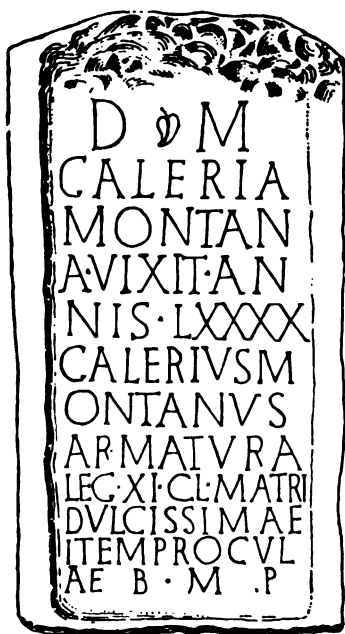 D M
CALERIA
MONTAN
A·VIXIT·AN
NIS·LXXXX
CALERIVSM
ONTANVS
AR·MATVRA
LEG·XI·CL·MATRI
DVLCISSIMAE
ITEMPROCVL
AE B·M·P